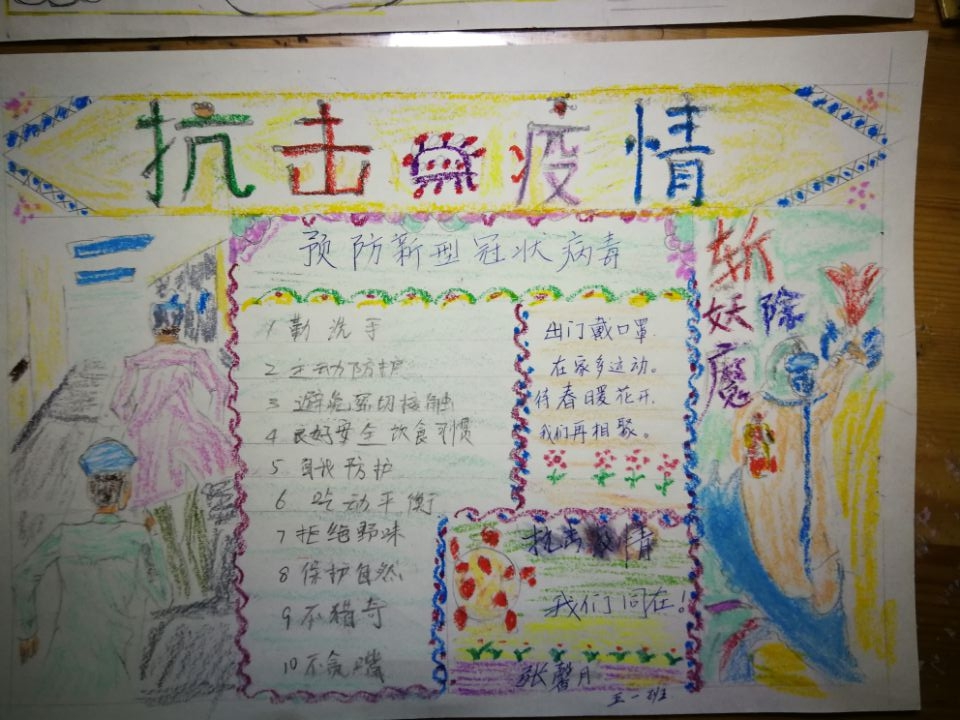 抗击疫情
预防新型冠状病毒
1 勤洗手
2 主动防护
3 避免密切接触
4 良好安全饮食习惯
5 自我防护
6 吃动平衡
7 拒绝野味
8 保护自然
9 不猎奇
10 不贪嘴
出门戴口罩.
在家多运动。
待春暖花开.
我们再相聚。
抗击疫情
我们同在!
张馨月
五一班
斩妖除魔